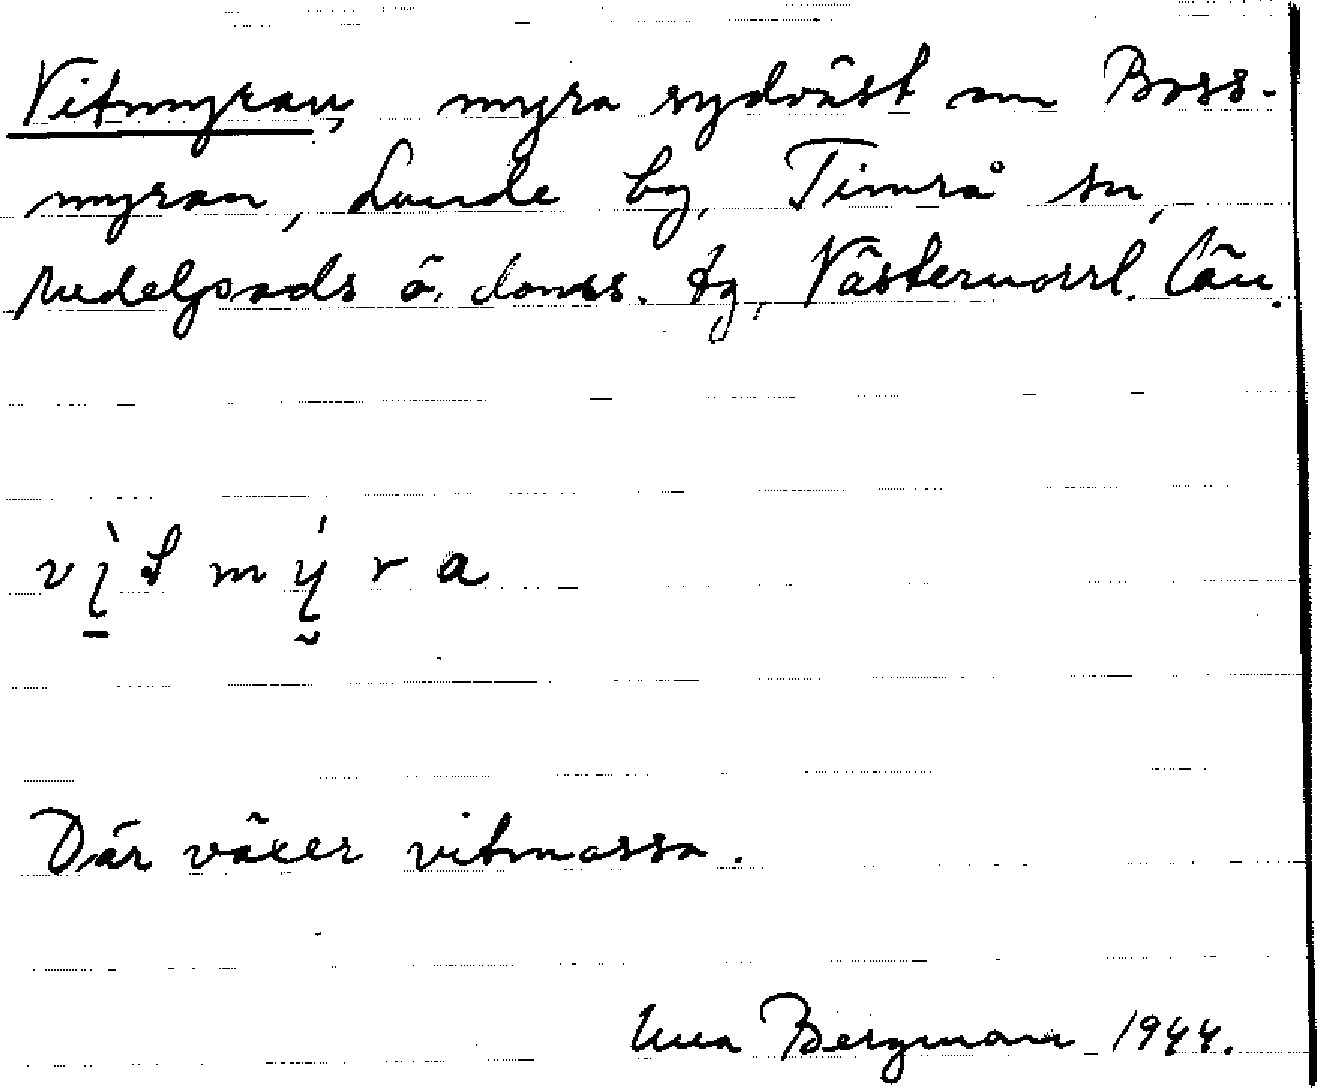 Vitmyran, myra sydväst om Boss-
myran, Lunde by, Timrå sn,
Medelpads ö. doms. tg, Västernorrl. län.
vì̱t mý̰ra
Där växer vitmossa.
Bergman 1944.